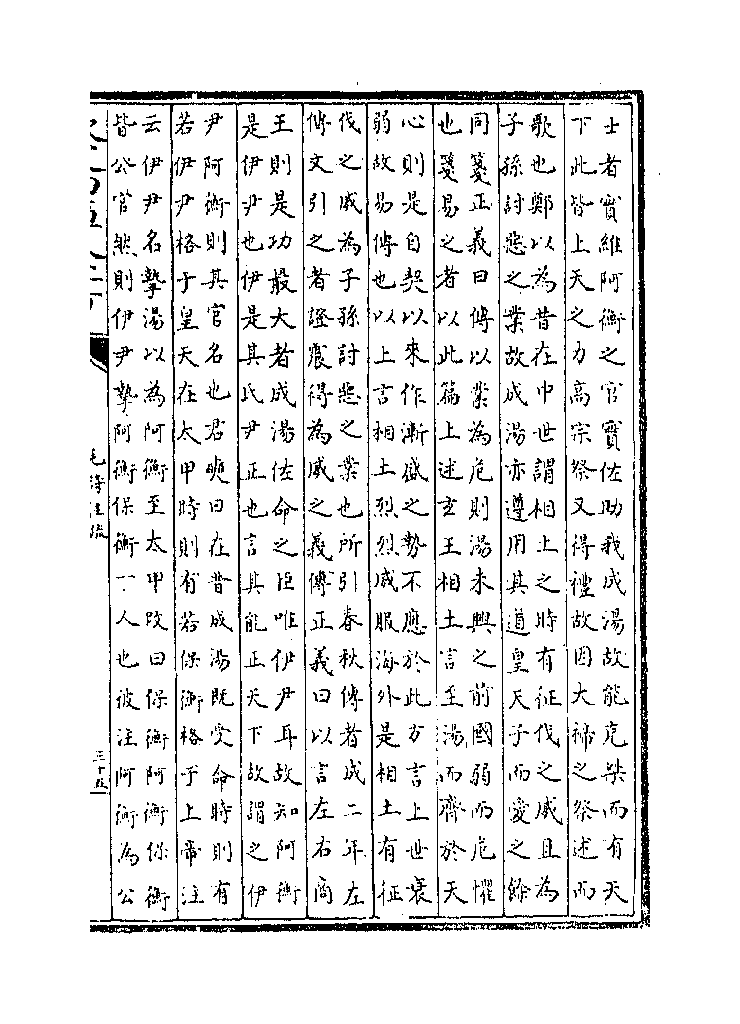 士者實維阿衡之官實佐助我成湯故能克桀而有天
下此皆上天之力高宗祭又得禮故因大禘之祭述而
歌也鄭以為昔在中世謂相土之時有征伐之威且為
子孫討惡之業故成湯亦遵用其道皇天子而愛之餘
同箋正義曰傳以業為危則湯未興之前國弱而危懼
也箋易之者以此篇上述玄王相土言至湯而齊於天
心則是自契以來作漸盛之勢不應於此方言上世衰
弱故易傳也以上言相土烈烈威服海外是相土有征
伐之威為子孫討惡之業也所引春秋傳者成二年左
傳文引之者證震得為威之義傳正義曰以言左右商
王則是功最大者成湯佐命之臣唯伊尹耳故知阿衡
是伊尹也伊是其氏尹正也言其能正天下故謂之伊
尹阿衡則其官名也君奭曰在昔成湯既受命時則有
若伊尹格于皇天在太甲時則有若保衡格于上帝注
云伊尹名摯湯以為阿衡至太甲改曰保衡阿衡保衡
皆公官然則伊尹摯阿衡保衡一人也彼注阿衡為公
毛詩注疏
三十五